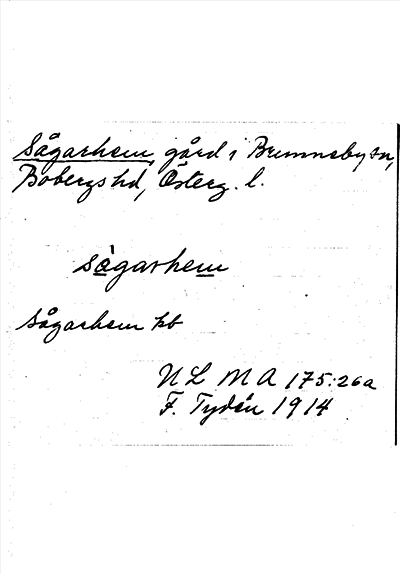 Sågarhem, gård i Brunneby sn,
Bobergs hd, Österg. l.
sågarhem
Sågarhem kb
ULMA 175:26a
F. Tydén 1914